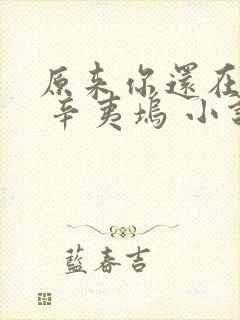 原来你還在
辛夷塢 小
藍春吉